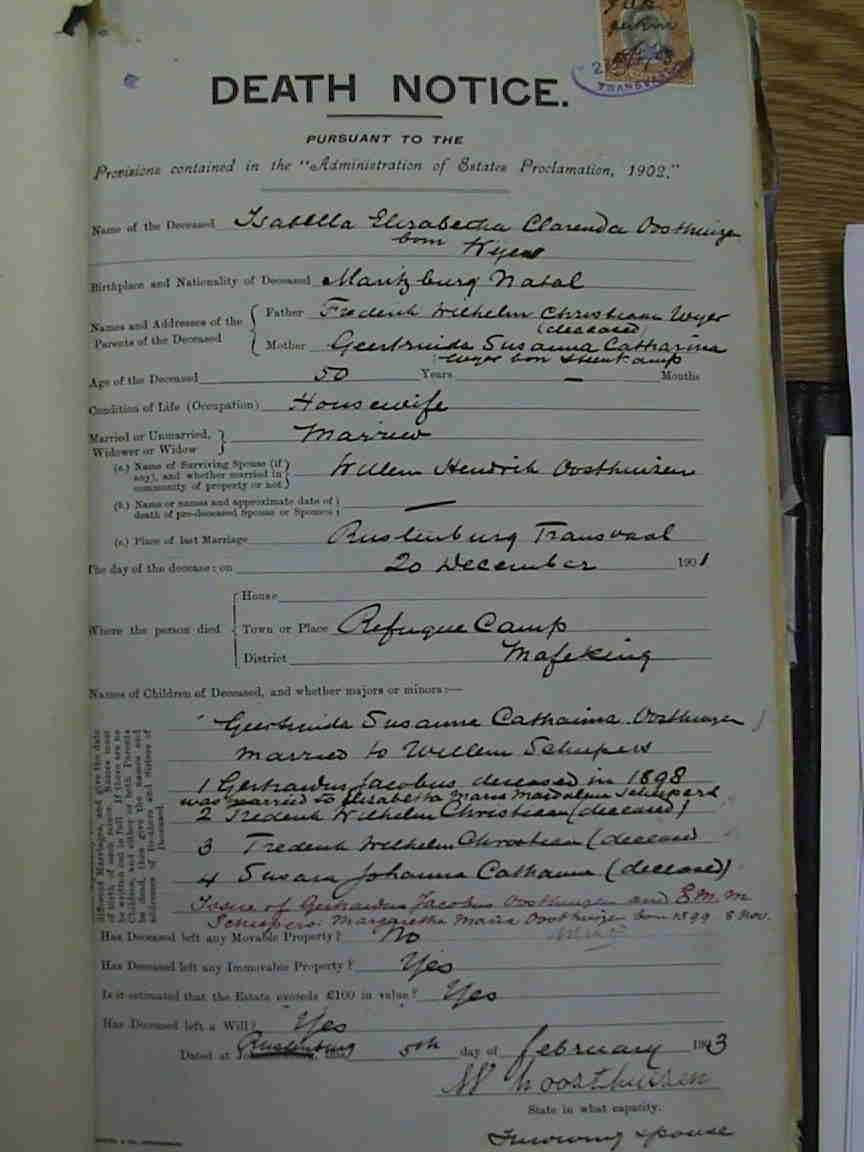 DEATH NOTICE.
PURSUANT TO THE
Provisions contained in the "Administration of Estates Proclamation, 1902."
TRANSVAAL
Name of the Deceased Isabella Elizabetha Clarenda Oosthuizen
born Wyer
Birthplace and Nationality of Deceased Maritzburg Natal
Names and Addresses of the Parents of the Deceased
Father Frederik Wilhelm Christiaan Wyer
(deceased)
Mother Geertruida Susanna Catharina
Wyer born Steenkamp
Age of the Deceased 50 Years — Months
Condition of Life (Occupation) Housewife
Married or Unmarried, Widower or Widow Married
(a.) Name of Surviving Spouse (if any), and whether married in community of property or not Willem Hendrik Oosthuizen
(b.) Name or names and approximate date of death of pre-deceased Spouse or Spouses —
(c.) Place of last Marriage Rustenburg Transvaal
The day of the decease: on 20 December 1901
Where the person died
House
Town or Place Refugee Camp
District Mafeking
Names of Children of Deceased, and whether majors or minors:—
Geertruida Susanna Catharina Oosthuizen
married to Willem Scheepers
1 Gerhardus Jacobus deceased in 1898
was married to Elizabetha Maria Magdalena Scheepers
2 Frederik Wilhelm Christiaan (deceased)
3 Frederik Wilhelm Christiaan (deceased
4 Susara Johanna Catharina (deceased)
Issue of Gerhardus Jacobus Oosthuizen and E.M.M.
Scheepers: Margaretha Maria Oosthuizen born 1899 8 Nov.
Has Deceased left any Movable Property? No
Has Deceased left any Immovable Property? Yes
Is it estimated that the Estate exceeds £100 in value? Yes
Has Deceased left a Will? Yes
Dated at Rustenburg 5th day of February 1903
W H Oosthuizen
State in what capacity.
Surviving spouse